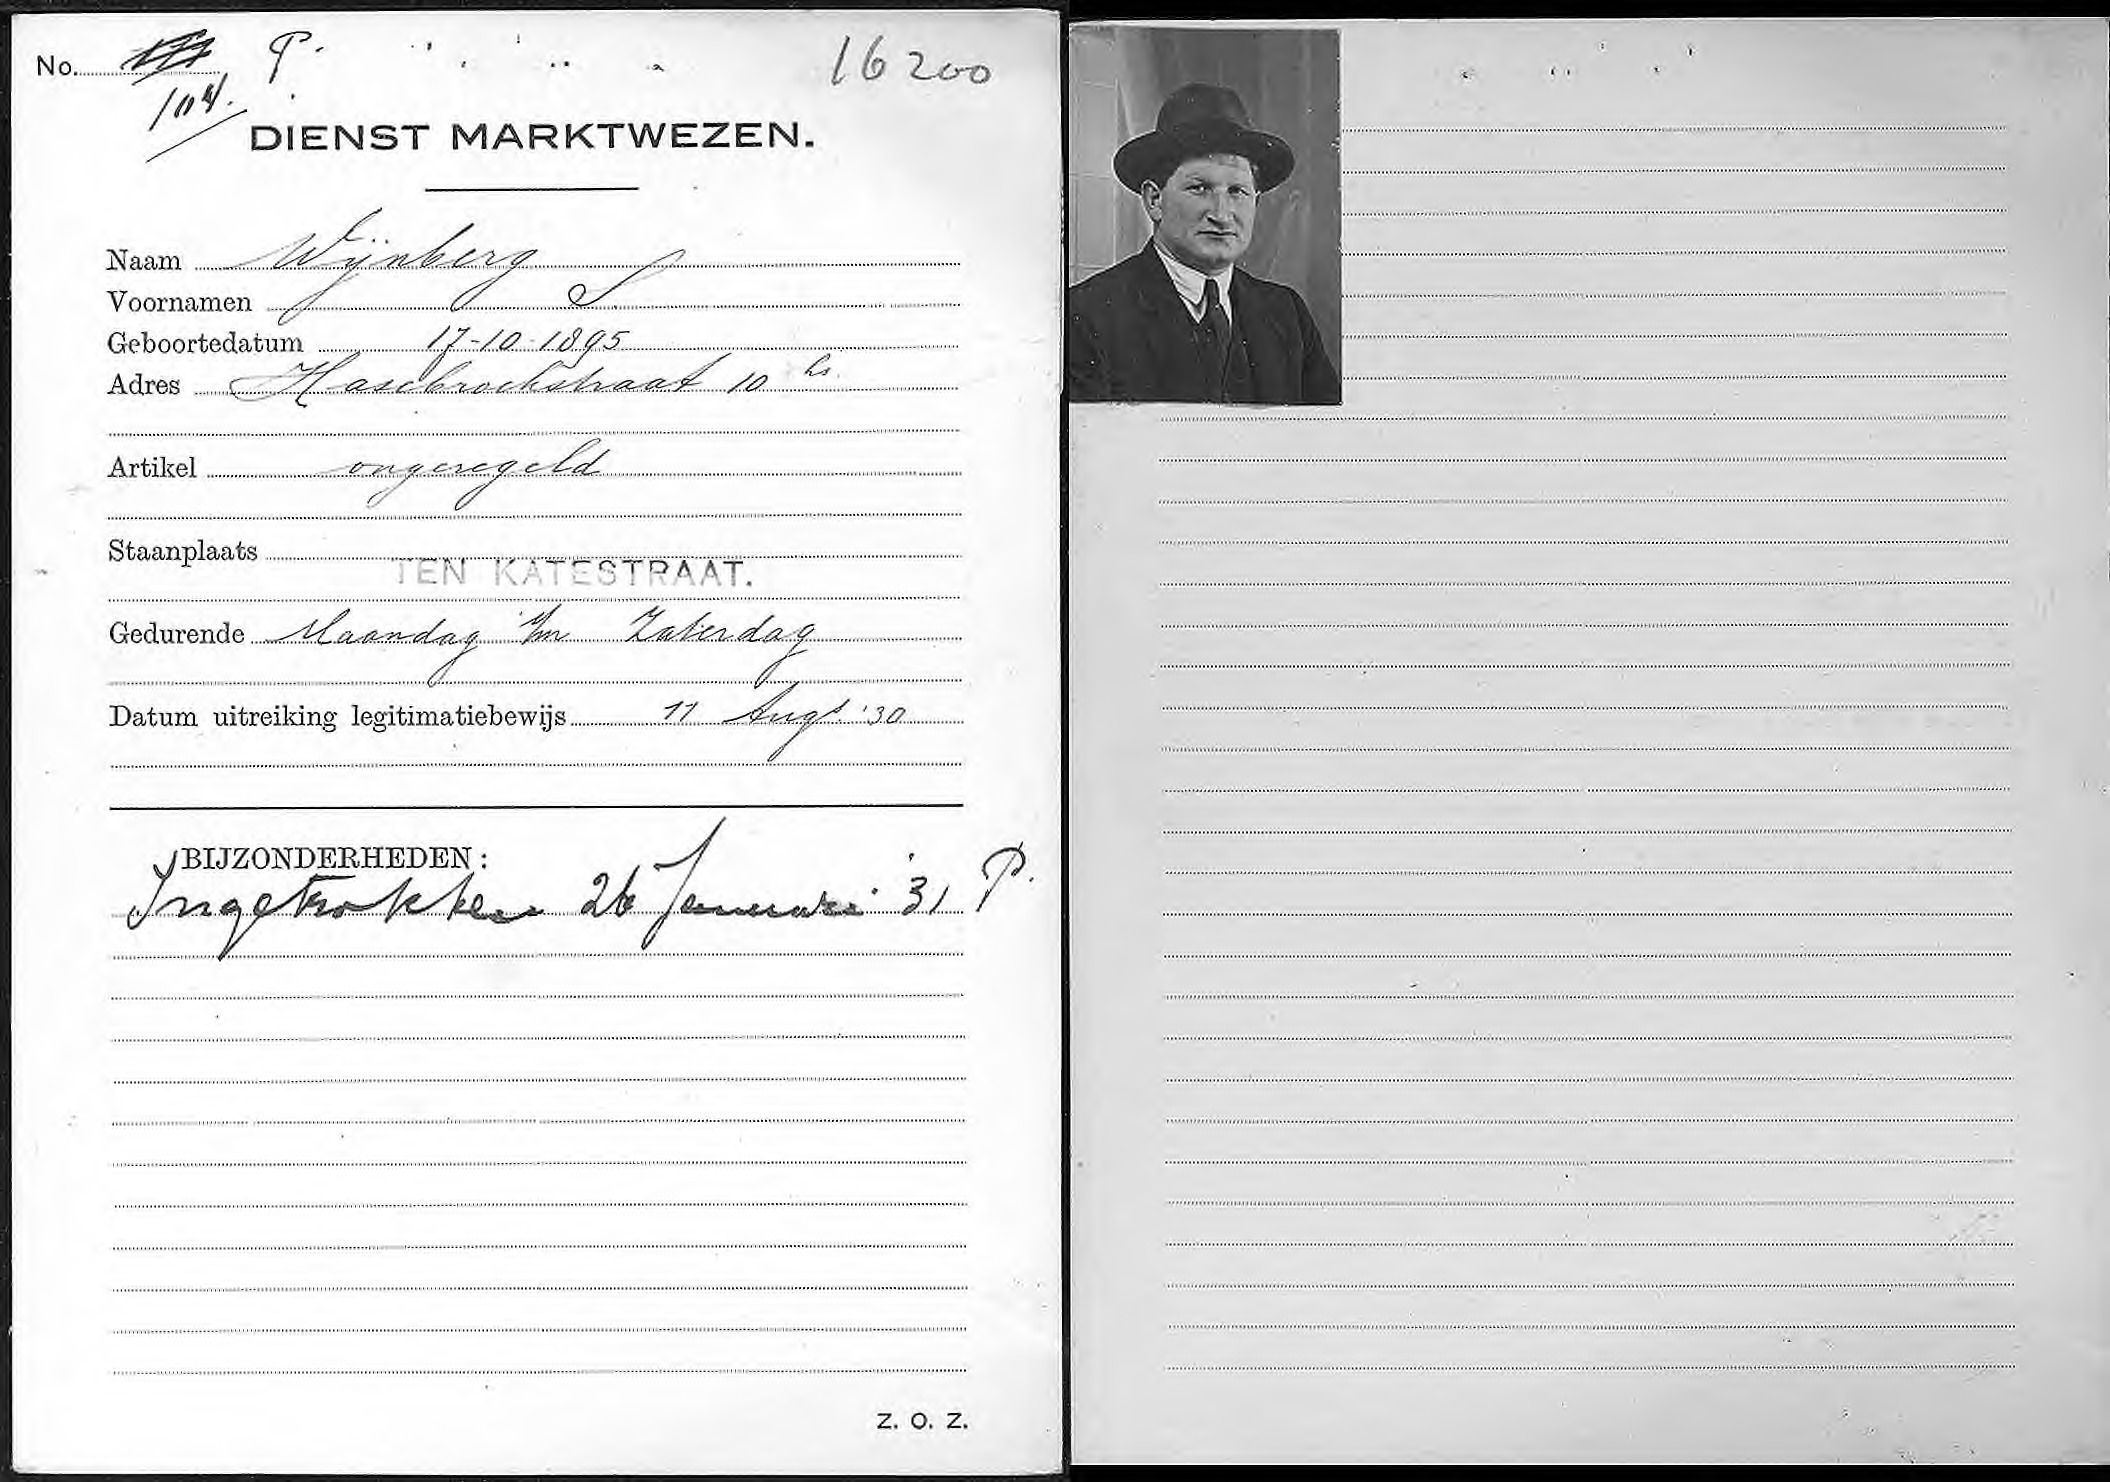 No. P. 16200
104.
DIENST MARKTWEZEN.
Naam Wijnberg
Voornamen S.
Geboortedatum 17-10-1895
Adres Hasebroekstraat 10 hs.
Artikel ongeregeld
Staanplaats
TEN KATESTRAAT.
Gedurende Maandag t/m Zaterdag
Datum uitreiking legitimatiebewijs 11 Aug. '30
BIJZONDERHEDEN:
Ingetrokken 26 Januari '31 P.
Z. O. Z.